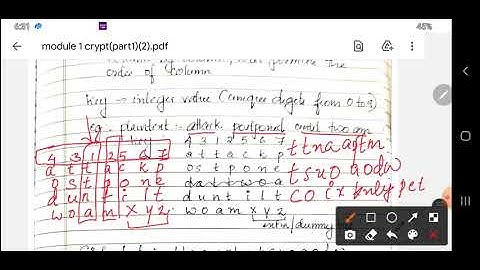 6:31
45%
module 1 crypt(part1)(2).pdf
order of column
key → integer value (unique digits from 0 to 9)
eg - plaintext - attack postponed until two am
key
4 3 1 2 5 6 7 4 3 1 2 5 6 7 ttna aptm
a t t a c k p a t t a c k p
o s t p o n e o s t p o n e tsuo aodw
d u n t i l t d u n t i l t
w o a m x y z w o a m x y z
extra/dummy